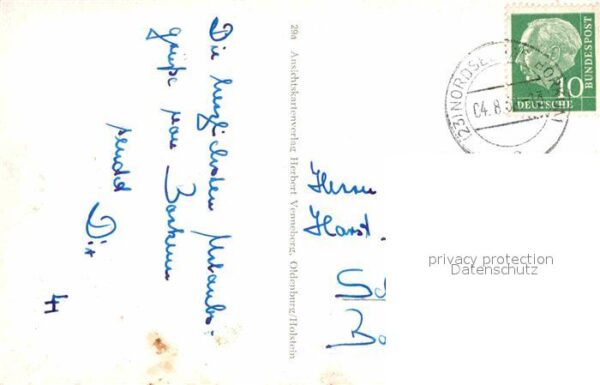 Die herzlichsten Urlaubs-
grüße von Borkum
sendet Dir
29a Ansichtskartenverlag Herbert Venneberg, Oldenburg/Holstein
Herrn
Horst
10
DEUTSCHE
BUNDESPOST
(23) NORDSEE
04.8.
privacy protection
Datenschutz